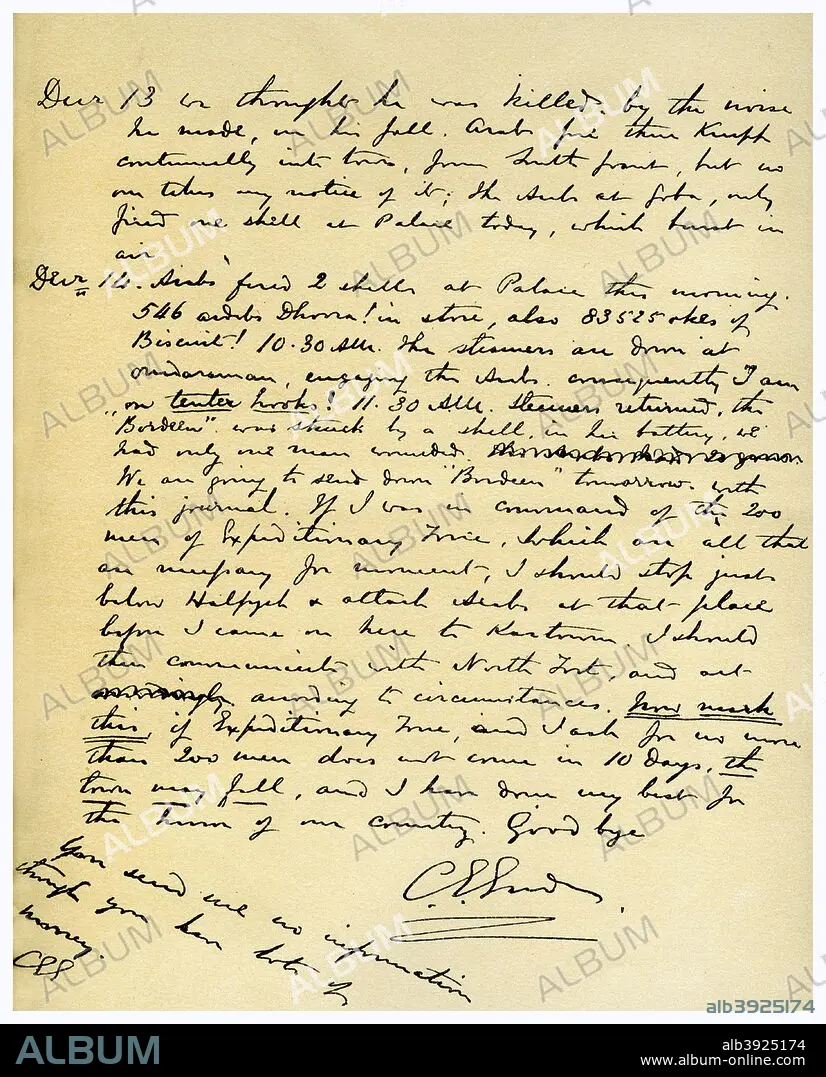 Decr 13 we thought he was killed, by the noise
he made, in his fall. Arabs fire their Krupp
continually into town, from South front, but no
one takes any notice of it; the Arabs at Goba, only
fired one shell at Palace today, which burst in
air
Decr 14. Arabs fired 2 shells at Palace this morning.
546 ardebs Dhoora! in store, also 83525 okes of
Biscuit! 10.30 AM. The steamers are down at
Omdarman, engaging the Arabs. consequently I am
"on tenter hooks"! 11.30 AM. steamers returned, the
"Bordeen" was struck by a shell, in her battery, we
had only one man wounded.
We are going to send down "Bordeen" tomorrow with
this journal. If I was in command of the 200
men of Expeditionary Force, which are all that
are necessary for movement, I should stop just
below Halfyeh & attack Arabs at that place
before I came on here to Kartoum. I should
then communicate with North Fort, and act
according to circumstances. Now mark
this, if Expeditionary Force, and I ask for no more
than 200 men does not come in 10 days, the
town may fall, and I have done my best for
the honor of our country. Good bye
C. E. Gordon.
You send me no information
though you have lots of
money.
CGG
ALBUM
alb3925174
ALBUM
alb3925174
www.album-online.com